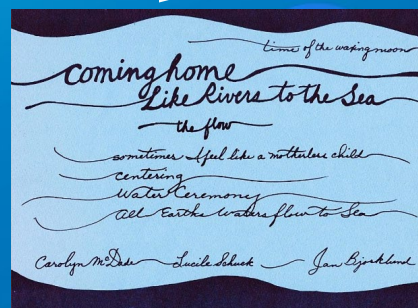 time of the waxing moon
coming home
Like Rivers to the Sea
the flow
sometimes I feel like a motherless child
centering
Water Ceremony
All Earths Waters flow to Sea
Carolyn McDade Lucile Schuck Jan Bjorklund